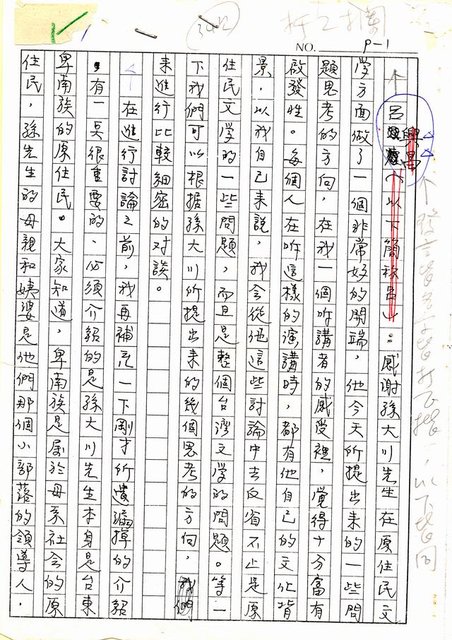 NO.
P-1
呂興昌(以下簡稱呂):感謝孫大川先生在原住民文
學方面做了一個非常好的開端,他今天所提出來的一些問
題思考的方向,在我一個听講者的感受裡,覺得十分富有
啟發性。每個人在听這樣的演講時,都有他自己的文化背
景,以我自己來說,我会從他這些討論中去反省不止是原
住民文学的一些問題,而且是整個台灣文学的問題。等一
下我們可以根據孫大川所提出來的幾個思考的方向,我們
來進行比較細密的对談。
在進行討論之前,我再補充一下剛才所遺漏掉的介紹
,有一点很重要的、必須介紹的是孫大川先生本身是台東
卑南族的原住民。大家知道,卑南族是屬於母系社会的原
住民,孫先生的母親和姨婆是他們那個小部落的領導人,